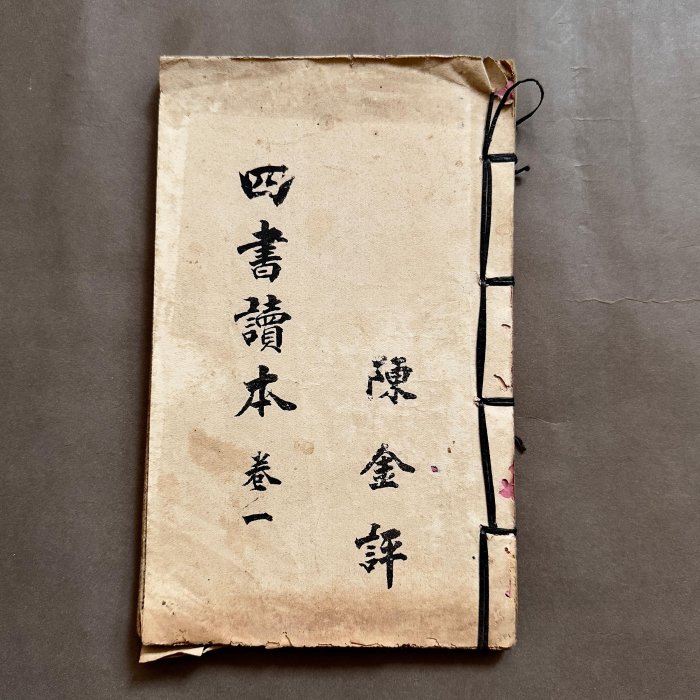 陳金評
四書讀本 卷一